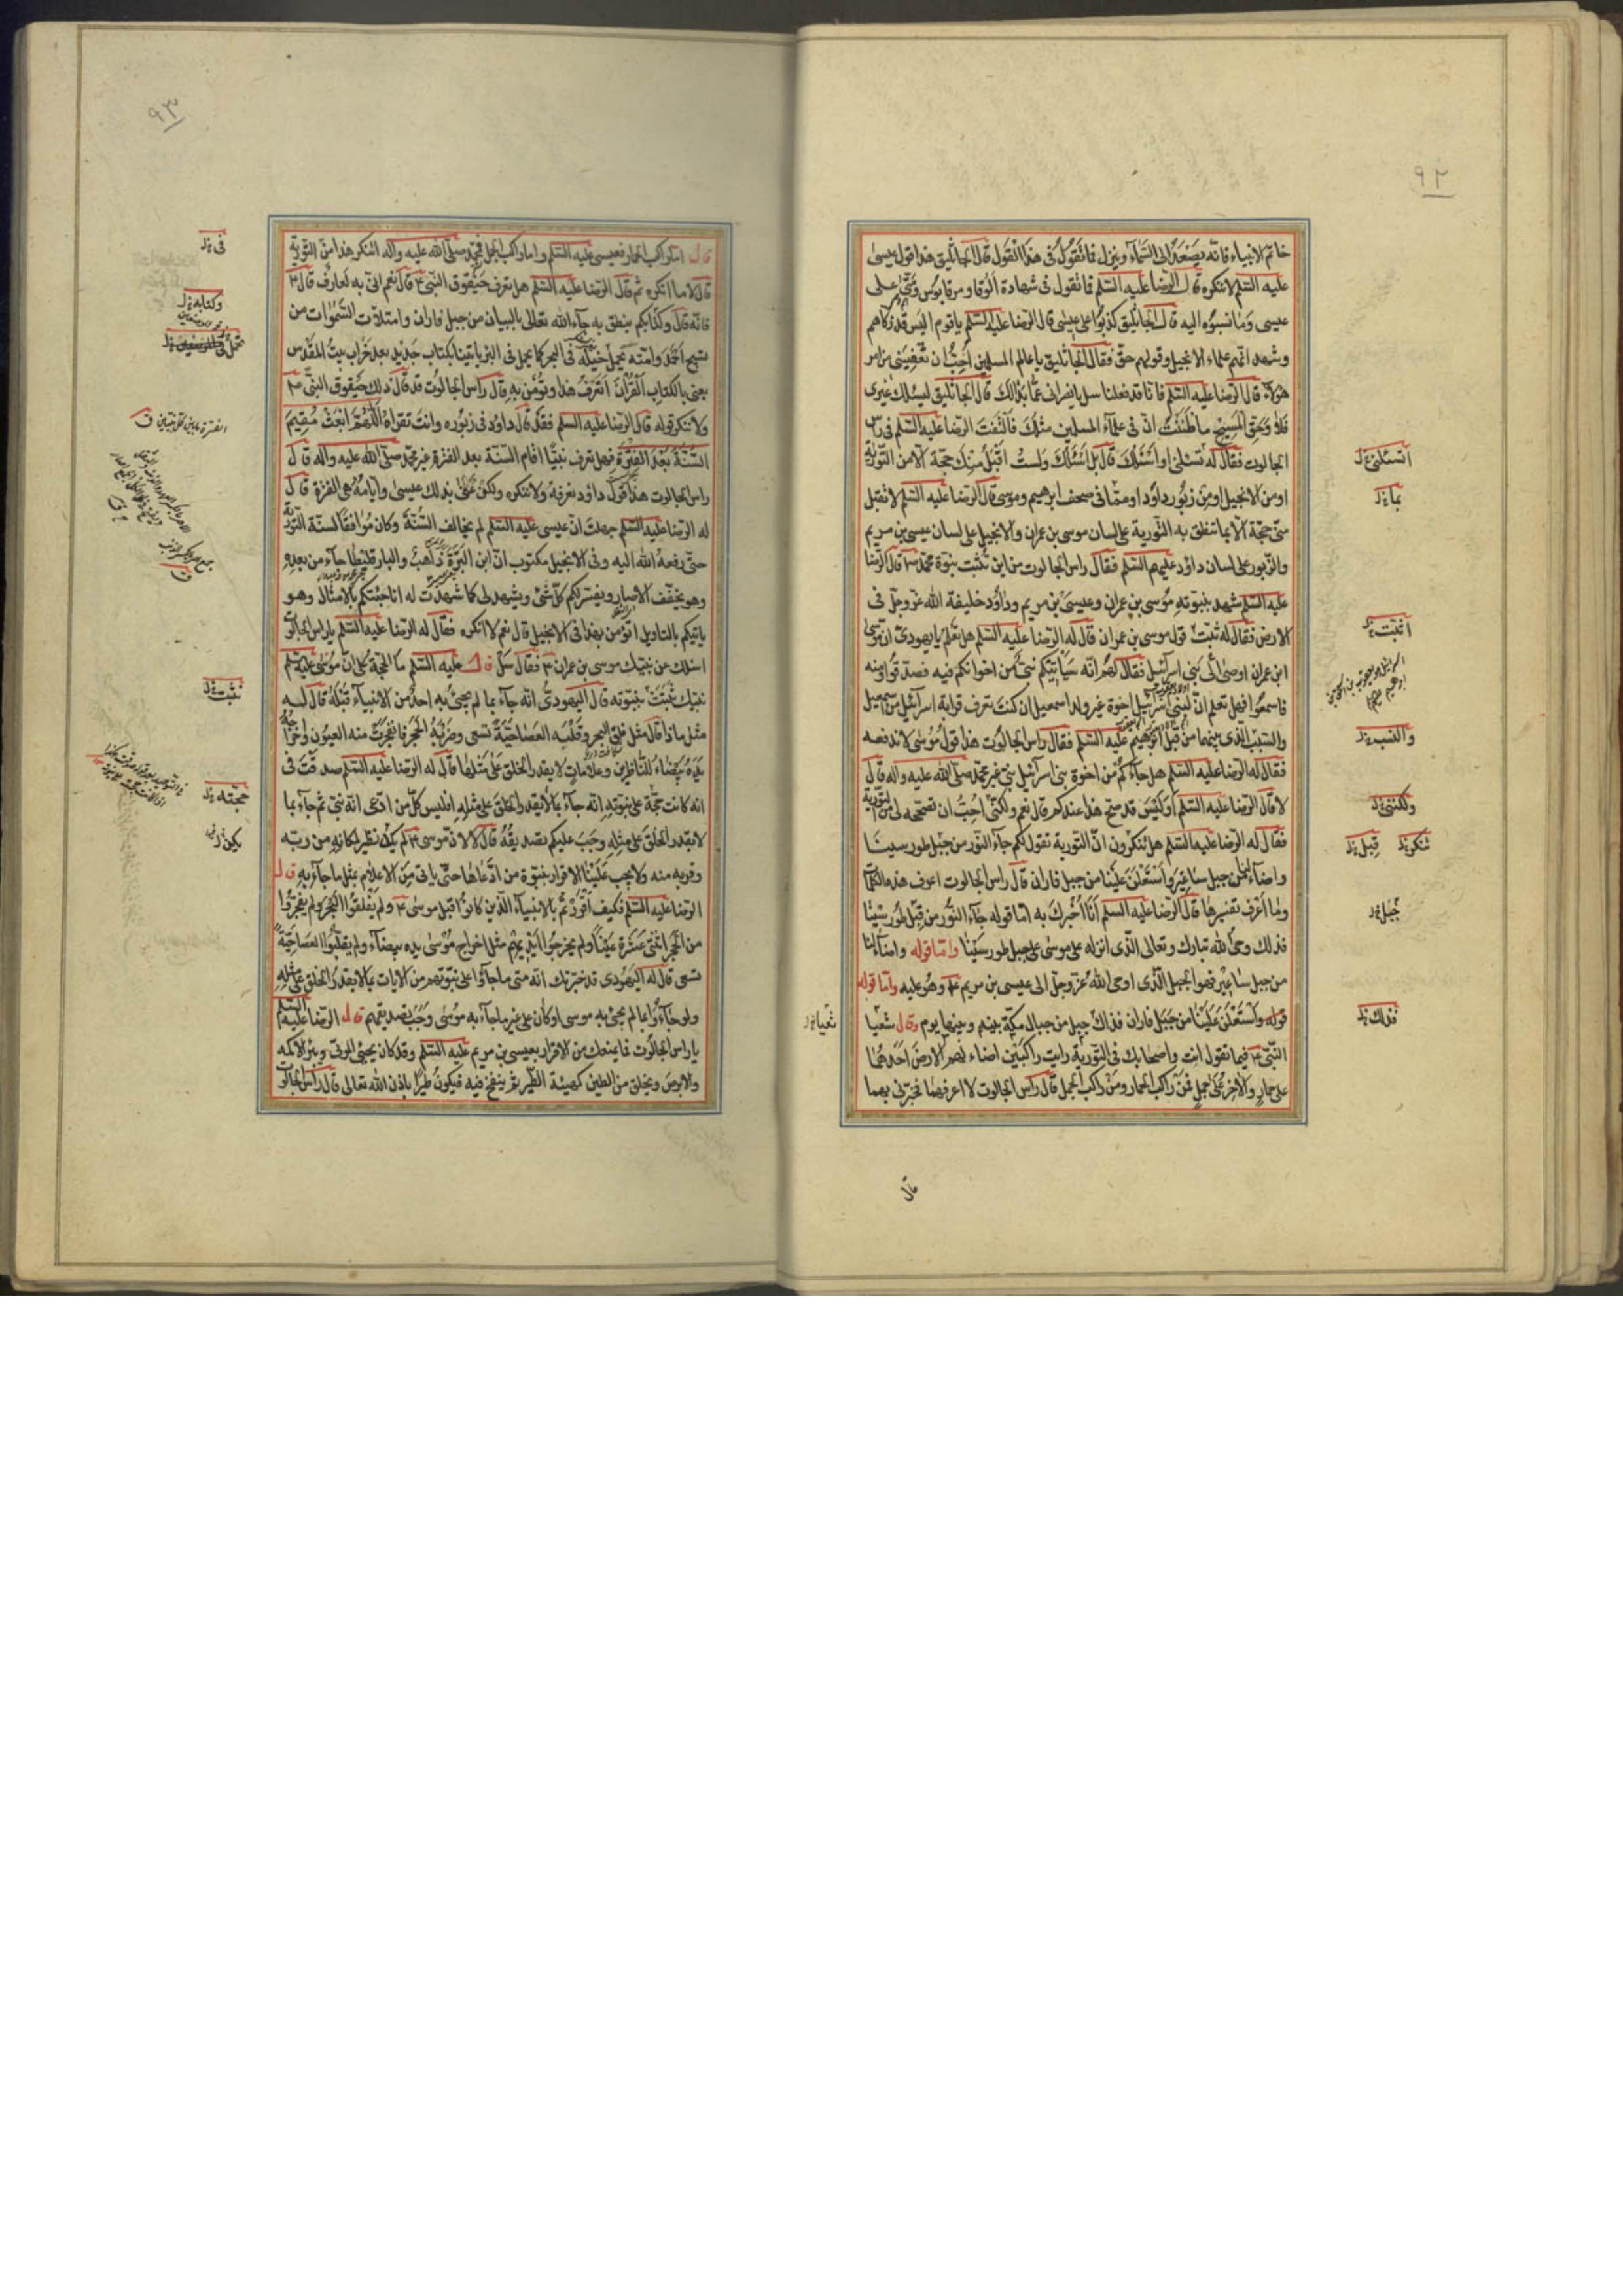 ٩٢
خاتم الانبياء فانه يصعد الى السماء وينزل فما تقول فى هذا القول قال الجاثليق هذا قول عيسى
عليه السلم لا ننكره قال الرضا عليه السلم فما تقول فى شهادة الوقا ومرقابوس ومتى على
عيسى وما نسبوه اليه قال الجاثليق كذبوا على عيسى قال الرضا عليه السلم يا قوم اليس قد زكاهم
وشهد انهم علماء الانجيل وقولهم حق فقال الجاثليق يا عالم المسلمين احب ان تعفينى من امر
هؤلاء قال الرضا عليه السلم فانا قد فعلنا سل يا نصرانى عما بدالك قال الجاثليق ليسئلك غيرى
فلا وحق المسيح ما ظننت ان فى علماء المسلمين مثلك فالتفت الرضا عليه السلم فى راس
الجالوت فقال له تسئلنى او اسئلك قال بل اسئلك ولست اقبل منك حجة الا من التورية
او من الانجيل او من زبور داود او مما فى صحف ابرهيم وموسى قال الرضا عليه السلم لا تقبل
منى حجة الا بما تنطق به التورية على لسان موسى بن عمران والانجيل على لسان عيسى بن مريم
والزبور على لسان داود عليهم السلم فقال راس الجالوت من اين تثبت نبوة محمد ص قال الرضا
عليه السلم شهد بنبوته موسى بن عمران وعيسى بن مريم وداود خليفة الله عز وجل فى
الارض فقال له ثبت قول موسى بن عمران قال له الرضا عليه السلم هل تعلم يا يهودى ان موسى
ابن عمران اوصى الى بنى اسرائيل فقال لهم انه سياتيكم نبى من اخوانكم فيه فصدقوا ومنه
فاسمعوا فهل تعلم ان لبنى اسرئيل اخوة غير ولد اسمعيل ان كنت تعرف قرابة اسرائيل من اسمعيل
والسبب الذى بينهما من قبل ابرهيم عليه السلم فقال راس الجالوت هذا قول موسى لا ندفعه
فقال له الرضا عليه السلم هل جاءكم من اخوة بنى اسرائيل نبى غير محمد صلى الله عليه واله قال
لا قال الرضا عليه السلم اوليس قد صح هذا عندكم قال نعم ولكنى احب ان تصححه لى من التورية
فقال له الرضا عليه السلم هل تنكرون ان التورية تقول لكم جاء النور من جبل طور سيناء
واضاء لنا من جبل ساعير واستعلن علينا من جبل فاران قال راس الجالوت اعرف هذه الكلمات
وما اعرف تفسيرها قال الرضا عليه السلم انا اخبرك به اما قوله جاء النور من قبل طور سيناء
فذلك وحى الله تبارك وتعالى الذى انزله على موسى على جبل طور سيناء واما قوله واضاء لنا
من جبل ساعير فهو الجبل الذى اوحى الله عز وجل الى عيسى بن مريم ع وهو عليه واما قوله
قوله واستعلن علينا من جبل فاران فذاك جبل من جبال مكة بينه وبينها يوم وقال شعيا
النبى ع فيما تقول انت واصحابك فى التورية رايت راكبين اضاء لهم الارض احدهما
على حمار والاخر على جمل فمن راكب الحمار ومن راكب الجمل قال راس الجالوت لا اعرفهما فخبرنى بهما
قال
اتسئلنى
بما
اثبت
والنسب
ولكننى
تنكر
قبل
جبل
فذلك
شعيا
٩٣
قال اما راكب الحمار فعيسى عليه السلم واما راكب الجمل فمحمد صلى الله عليه واله اتنكر هذا من التورية
قال لا ما انكره ثم قال الرضا عليه السلم هل تعرف حيقوق النبى ع قال نعم انى به لعارف قال ع
فانه قال وكتابكم ينطق به جاء الله تعالى بالبيان من جبل فاران وامتلات السموات من
تسبيح احمد وامته يحمل خيله فى البحر كما يحمل فى البر ياتينا بكتاب جديد بعد خراب بيت المقدس
يعنى بالكتاب القران اتعرف هذا وتؤمن به قال راس الجالوت قد قال ذلك حيقوق النبى ع
ولا ننكر قوله قال الرضا عليه السلم فقد قال داود فى زبوره وانت تقراه اللهم ابعث مقيم
السنة بعد الفترة فهل تعرف نبيا اقام السنة بعد الفترة غير محمد صلى الله عليه واله قال
راس الجالوت هذا قول داود نعرفه ولا ننكره ولكن عنى بذلك عيسى وايامه هى الفترة قال
له الرضا عليه السلم جهلت ان عيسى عليه السلم لم يخالف السنة وكان موافقا لسنة التورية
حتى رفعه الله اليه وفى الانجيل مكتوب ان ابن البرة ذاهب والبارقليطا جاء من بعده
وهو يخفف الاصار ويفسر لكم كل شئ ويشهد لى كما شهدت له انا جئتكم بالامثال وهو
ياتيكم بالتاويل اتؤمن بهذا فى الانجيل قال نعم لا انكره فقال له الرضا عليه السلم يا راس الجالوت
اسئلك عن نبيك موسى بن عمران ع فقال سل قال عليه السلم ما الحجة على ان موسى عليه السلم
نبيك ثبتت نبوته قال اليهودى انه جاء بما لم يجئ به احد من الانبياء قبله قال له
مثل ماذا قال مثل فلق البحر وقلبه العصا حية تسعى وضربه الحجر فانفجرت منه العيون واخراجه
يده بيضاء للناظرين وعلامات لا يقدر الخلق على مثلها قال له الرضا عليه السلم صدقت فى
انه كانت حجة على نبوته انه جاء بما لا يقدر الخلق على مثله افليس كل من ادعى انه نبى ثم جاء بما
لا يقدر الخلق على مثله وجب عليكم تصديقه قال لا لان موسى ع لم يكن نظير لمكانه من ربه
وقربه منه ولا يجب علينا الاقرار بنبوة من ادعاها حتى ياتى من الاعلام بمثل ما جاء به قال
الرضا عليه السلم فكيف اقررتم بالانبياء الذين كانوا قبل موسى ع ولم يفلقوا البحر ولم يفجروا
من الحجر اثنتى عشرة عينا ولم يخرجوا ايديهم مثل اخراج موسى يده بيضاء ولم يقلبوا العصا حية
تسعى قال له اليهودى قد خبرتك انه متى ما جاؤا على نبوتهم من الايات بما لا يقدر الخلق على مثله
ولو جاءوا بما لم يجئ به موسى او كان على غير ما جاء به موسى وجب تصديقهم قال الرضا عليه السلم
يا راس الجالوت فما يمنعك من الاقرار بعيسى بن مريم عليه السلم وقد كان يحيى الموتى ويبرئ الاكمه
والابرص ويخلق من الطين كهيئة الطير ثم ينفخ فيه فيكون طيرا باذن الله تعالى قال راس الجالوت
فى
وكتابه
الفترة ما بين كل نبيين
تثبت
حجته
يكن